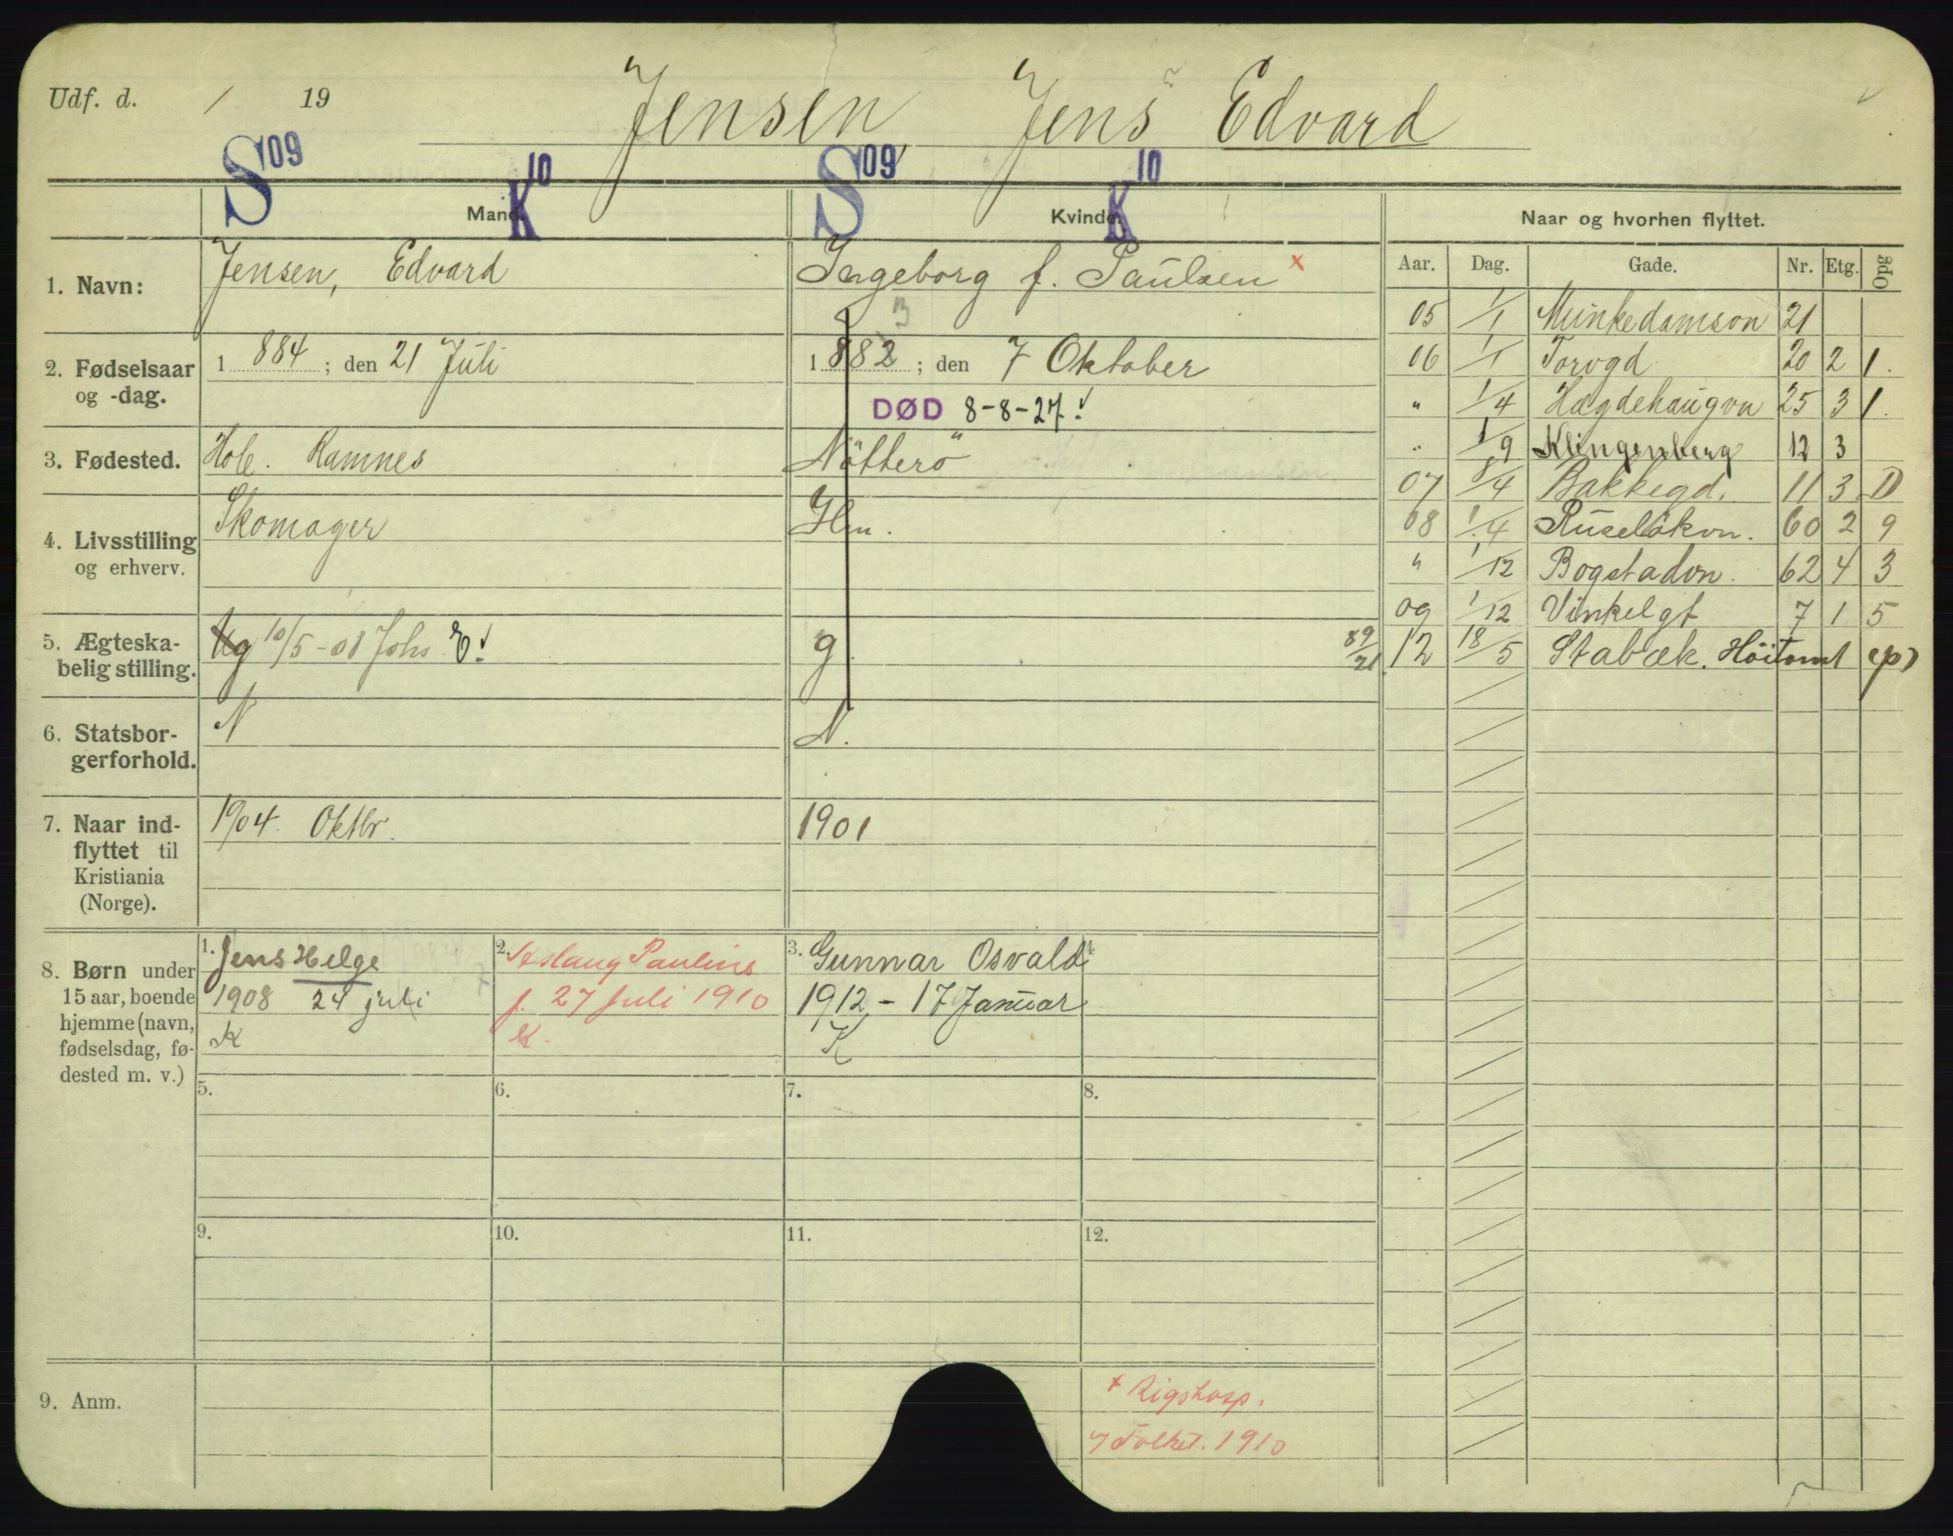 Udf. d. / 19
Jensen, Jens Edvard
S 09 K 10 S 09 K 10
Mand. Kvinde. Naar og hvorhen flyttet.
Aar. Dag. Gade. Nr. Etg. Opg
1. Navn: Jensen, Edvard Ingeborg f. Paulsen x
2. Fødselsaar og -dag. 1 884 ; den 21 Juli 1 882 ; den 7 Oktober
3
DØD 8-8-27.
3. Fødested. Hole. Ramnes Nötterö
4. Livsstilling og erhverv. Skomager Hm.
5. Ægteskabelig stilling. Ug 10/5-08 Johs E. g 89/21
6. Statsborgerforhold. N N.
7. Naar indflyttet til Kristiania (Norge). 1904. Oktbr. 1901
05 1/1 Munkedamson 21
06 1/1 Torvgd 20 2 1.
" 1/4 Hægdehaugvn 25 3 1.
" 1/9 Klingenberg 12 3
07 8/4 Bakkegd. 11 3 D
08 1/4 Ruseløkvn. 60 2 9
" 1/12 Bogstadvn. 62 4 3
09 1/12 Vinkelgt 7 1 5
12 18/5 Stabæk. Höitomt (p)
8. Børn under 15 aar, boende hjemme (navn, fødselsdag, fødested m. v.)
1. Jens Helge
1908 24 juli
K
2. Aslaug Pauline
f. 27 juli 1910
K.
3. Gunnar Osvald
1912 - 17 Januar
K
4
5. 6. 7. 8.
9. 10. 11. 12.
9. Anm.
x Rigshosp.
7 Folket. 1910